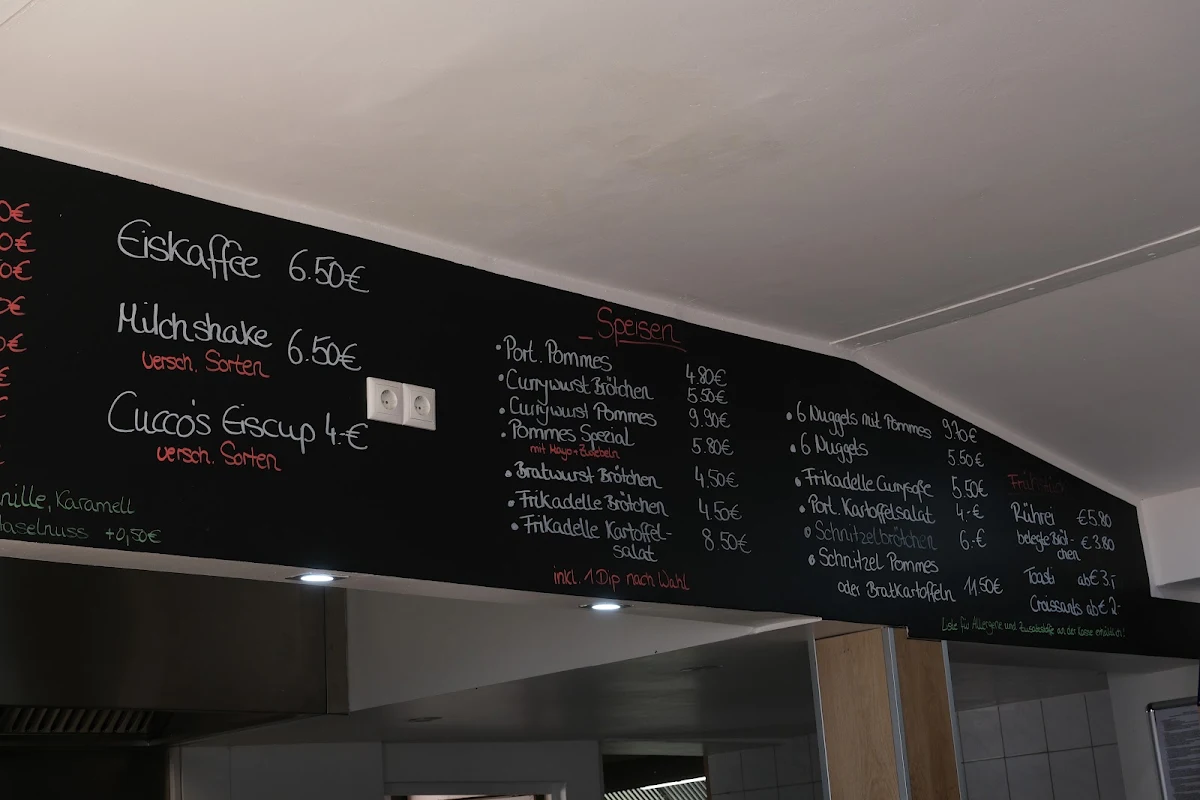 Eiskaffee 6.50€
Milchshake 6.50€
versch. Sorten
Cucco's Eiscup 4.-€
versch. Sorten
nille, Karamell
Haselnuss +0,50€
Speisen
• Port. Pommes 4.80€
• Currywurst Brötchen 5.50€
• Currywurst Pommes 9.90€
• Pommes Spezial 5.80€
mit Mayo + Zwiebeln
• Bratwurst Brötchen 4,50€
• Frikadelle Brötchen 4.50€
• Frikadelle Kartoffel-
salat 8.50€
inkl. 1 Dip nach Wahl
• 6 Nuggets mit Pommes 9.70€
• 6 Nuggets 5.50€
• Frikadelle Currysoße 5.50€
• Port. Kartoffelsalat 4.-€
• Schnitzelbrötchen 6.-€
• Schnitzel Pommes
oder Bratkartoffeln 11.50€
Rührei €5.80
belegte Bröt-
chen €3.80
Toasti ab€3,-
Croissants ab€2-
Liste für Allergene und Zusatzstoffe an der Kasse erhältlich!